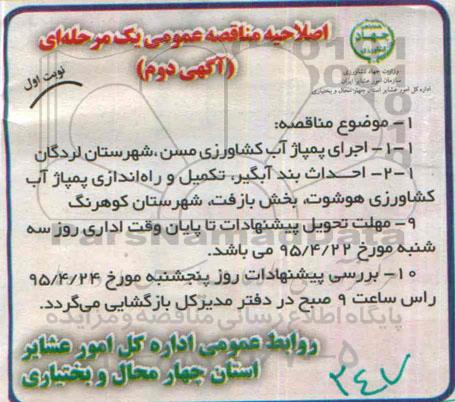 اصلاحیه مناقصه عمومی یک مرحله‌ای
(آگهی دوم)
نوبت اول
جهاد
کشاورزی
وزارت جهاد کشاورزی
سازمان امور عشایر ایران
اداره کل امور عشایر استان چهارمحال و بختیاری
۱- موضوع مناقصه:
۱-۱- اجرای پمپاژ آب کشاورزی مسن ،شهرستان لردگان
۲-۱- احداث بند آبگیر، تکمیل و راه‌اندازی پمپاژ آب
کشاورزی هوشوت، بخش بازفت، شهرستان کوهرنگ
۹- مهلت تحویل پیشنهادات تا پایان وقت اداری روز سه
شنبه مورخ ۹۵/۴/۲۲ می باشد.
۱۰- بررسی پیشنهادات روز پنجشنبه مورخ ۹۵/۴/۲۴
راس ساعت ۹ صبح در دفتر مدیرکل بازگشایی می‌گردد.
پایگاه اطلاع رسانی مناقصه و مزایده
روابط عمومی اداره کل امور عشایر
استان چهار محال و بختیاری
۲۴۷